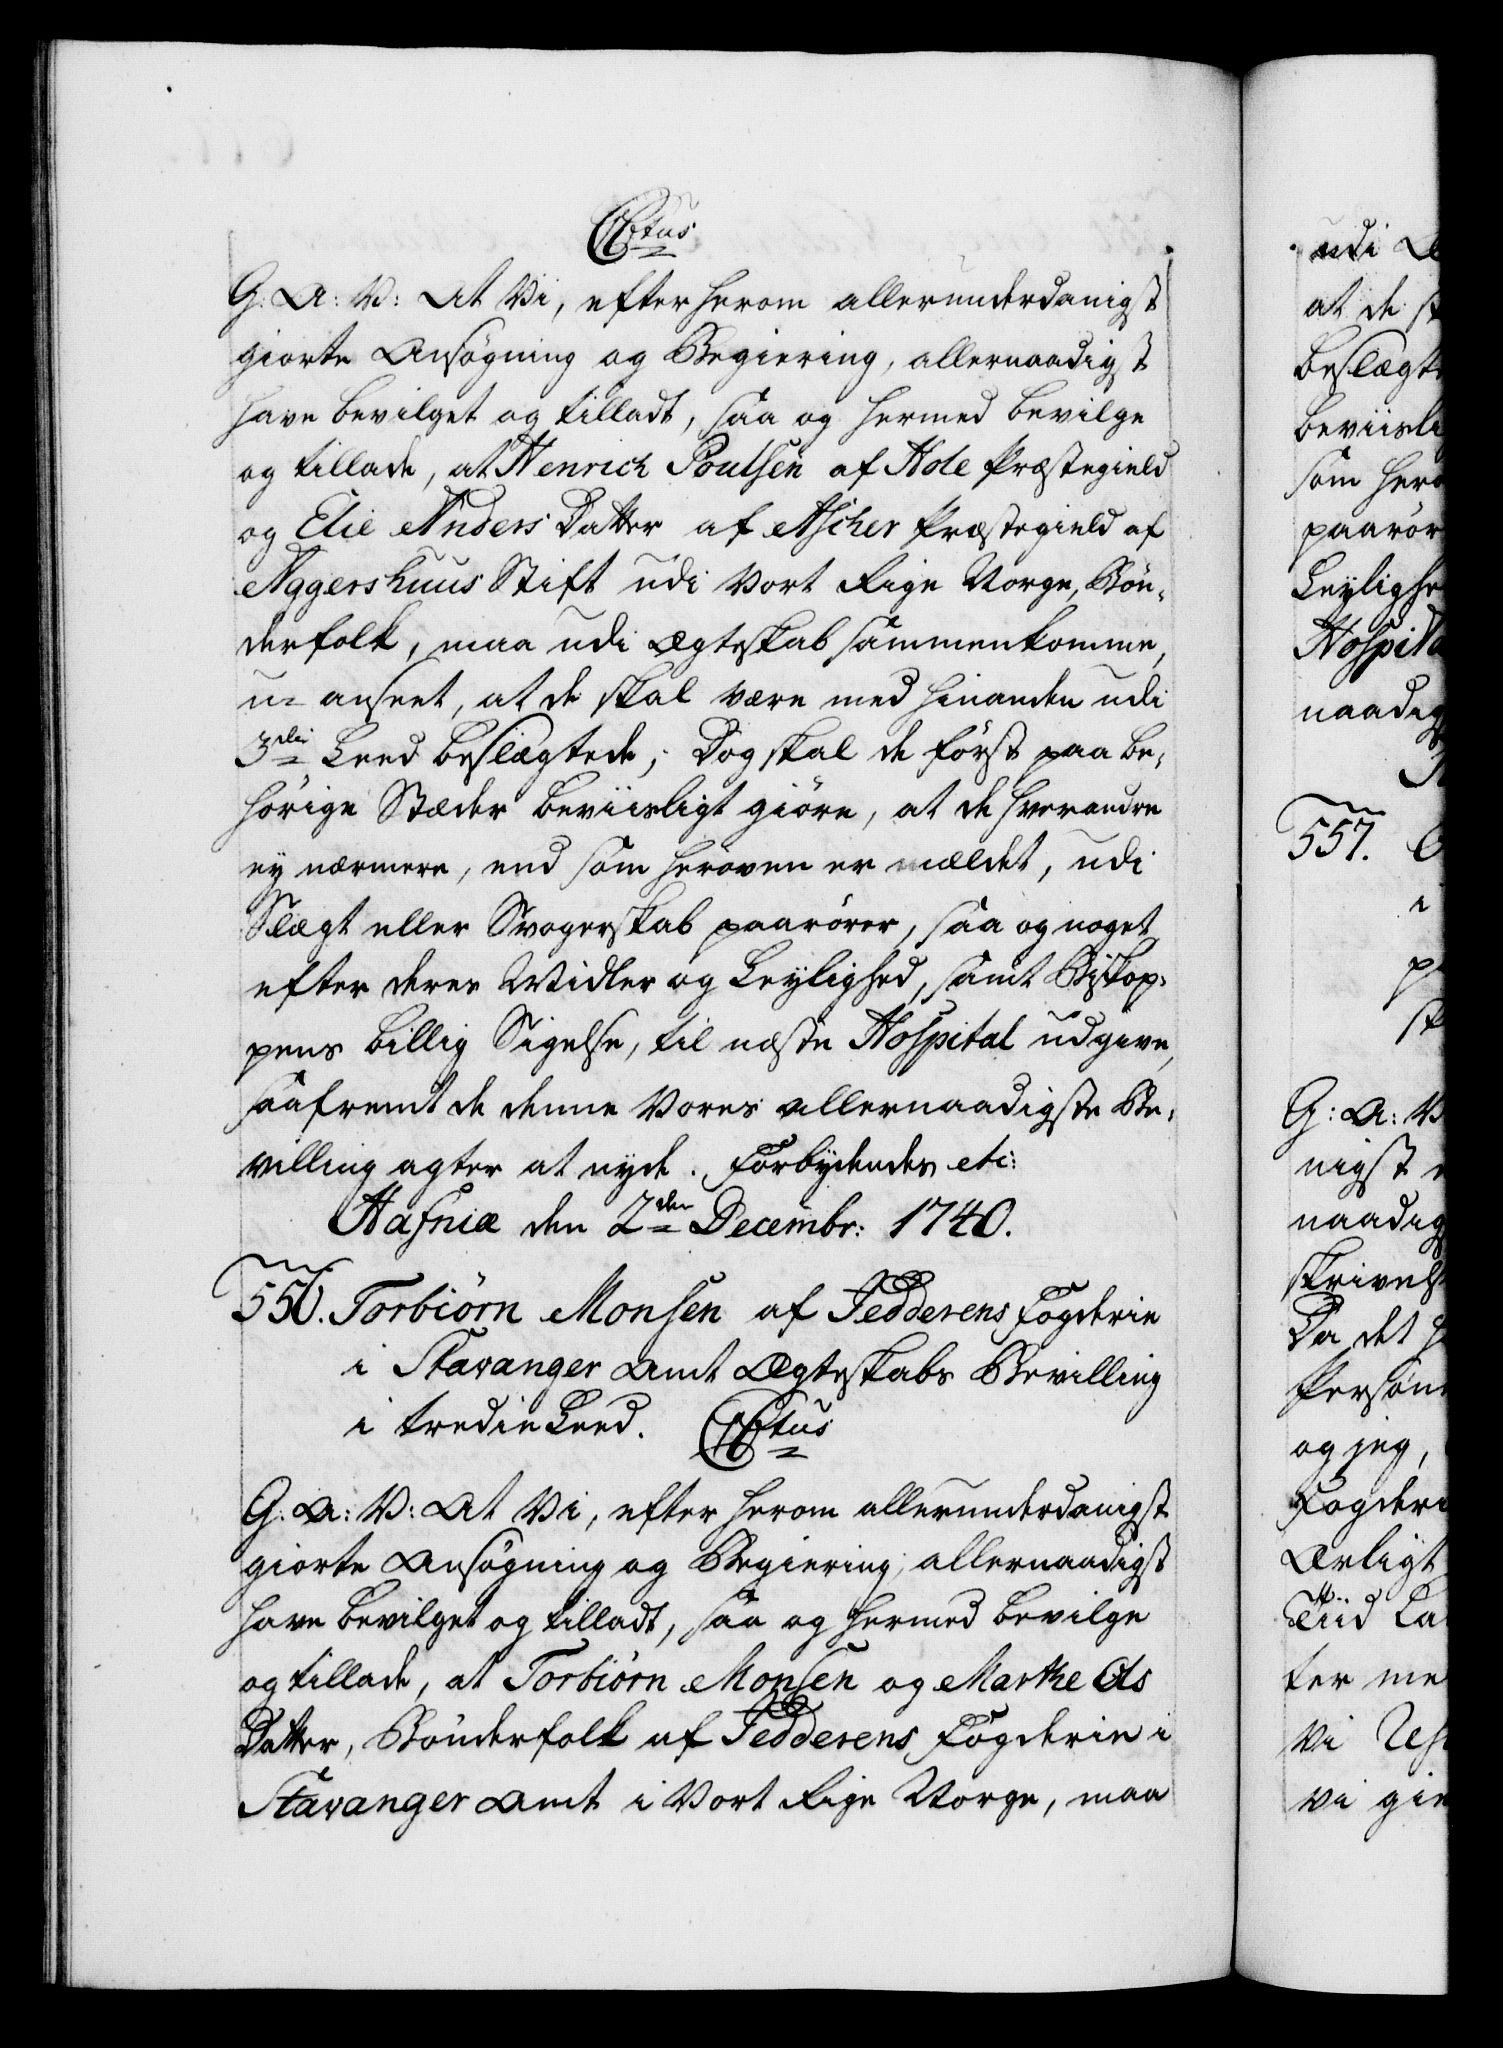 C6tus
G: A: V: At Vi, efter herom allerunderdanigst
giorte Ansøgning og Begiering, allernaadigst
have bevilget og tilladt, saa og hermed bevilge
og tillade, at Henrich Poulsen af Hole Præstegield
og Elie Anders Datter af Ascher Præstegield af
Aggershuus Stift udi Vort Rige Norge, Bøn-
derfolk, maa udi Ægteskab sammenkomme,
u- anseet, at de skal være med hinanden udi
3die Leed beslægtede; Dog skal de først paa be-
hørige Stæder beviisligt giøre, at de hverandre
ey nærmere, end som heroven er mældet, udi
Slægt eller Svogerskab paarører, saa og noget
efter deres Midler og Leylighed, samt Biskop-
pens billig Sigelse, til næste Hospital udgive,
saafremt de denne Vores allernaadigste Be-
villing agter at nyde. Forbydendes etc:
Hafniæ den 2den Decembr: 1740.
556. Torbiørn Monsen af Jedderens Fogderie
i Stavanger Amt Ægteskabs Bevilling
i tredie Leed. C6tus
G: A: V: At Vi, efter herom allerunderdanigst
giorte Ansøgning og Begiering, allernaadigst
have bevilget og tilladt, saa og hermed bevilge
og tillade, at Torbiörn Monsen og Marthe Ols
Datter, Bønderfolk af Jedderens Fogderie i
Stavanger Amt i Vort Rige Norge, maa
udi
at de
beslægte
beviisli
som hero
paarør
Leylighe
Hospita
naadig
557.
i
G: A: V
nigst
naadig
skrivels
Da det
Persone
og jeg,
Fogderi
Ærligt
Tiid La
ter me
Vi
vi gie